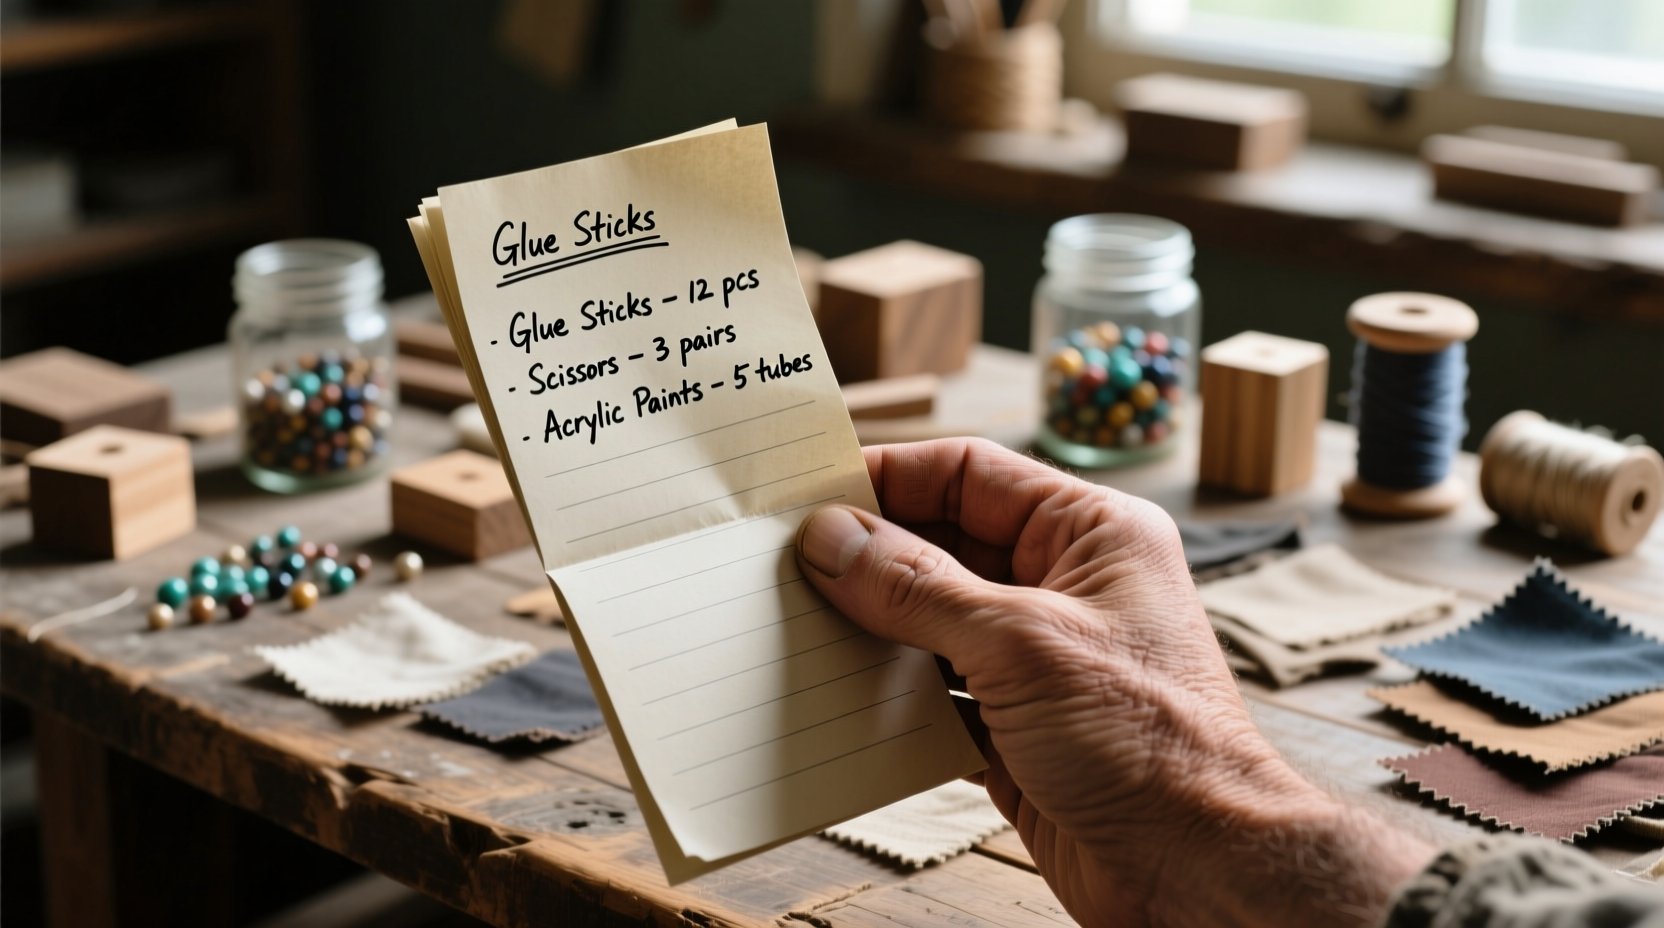 Glue Sticks
- Glue Sticks – 12 pcs
- Scissors – 3 pairs
- Acrylic Paints – 5 tubes